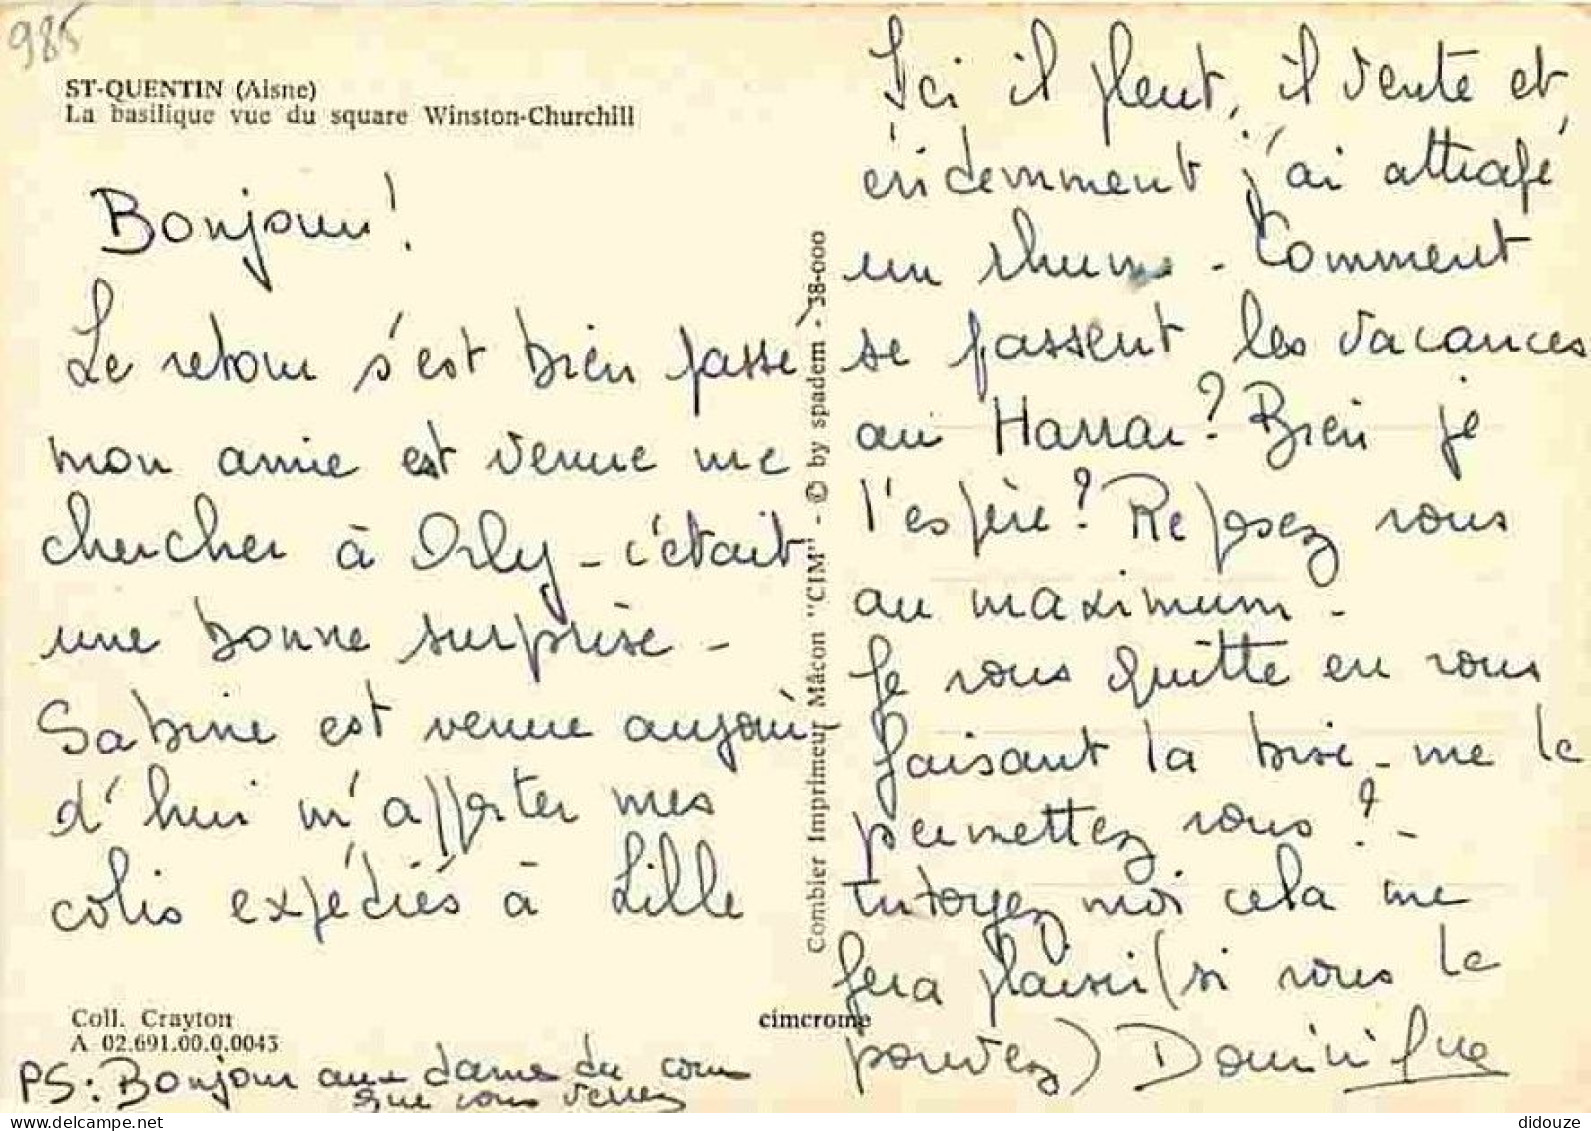 985
ST-QUENTIN (Aisne)
La basilique vue du square Winston-Churchill
Bonjour!
Le retour s'est bien passé
mon amie est venue me
chercher à Orly - c'était
une bonne surprise -
Sabine est venue aujour-
d'hui m'apporter mes
colis expédiés à Lille
Coll. Crayton
A 02.691.00.0.0043
PS: Bonjour aux dames du cours
que vous verrez
Combier Imprimeur Mâcon "CIM" - © by spadem - 38-000
cimcrome
Ici il pleut, il vente et
évidemment j'ai attrapé
un rhume - Comment
se passent les vacances
au Harrar? Bien je
l'espère? Reposez vous
au maximum -
Je vous quitte en vous
faisant la bise - me le
permettez vous? -
tutoyez moi cela me
fera plaisir (si vous le
pouvez) Dominique
didouze